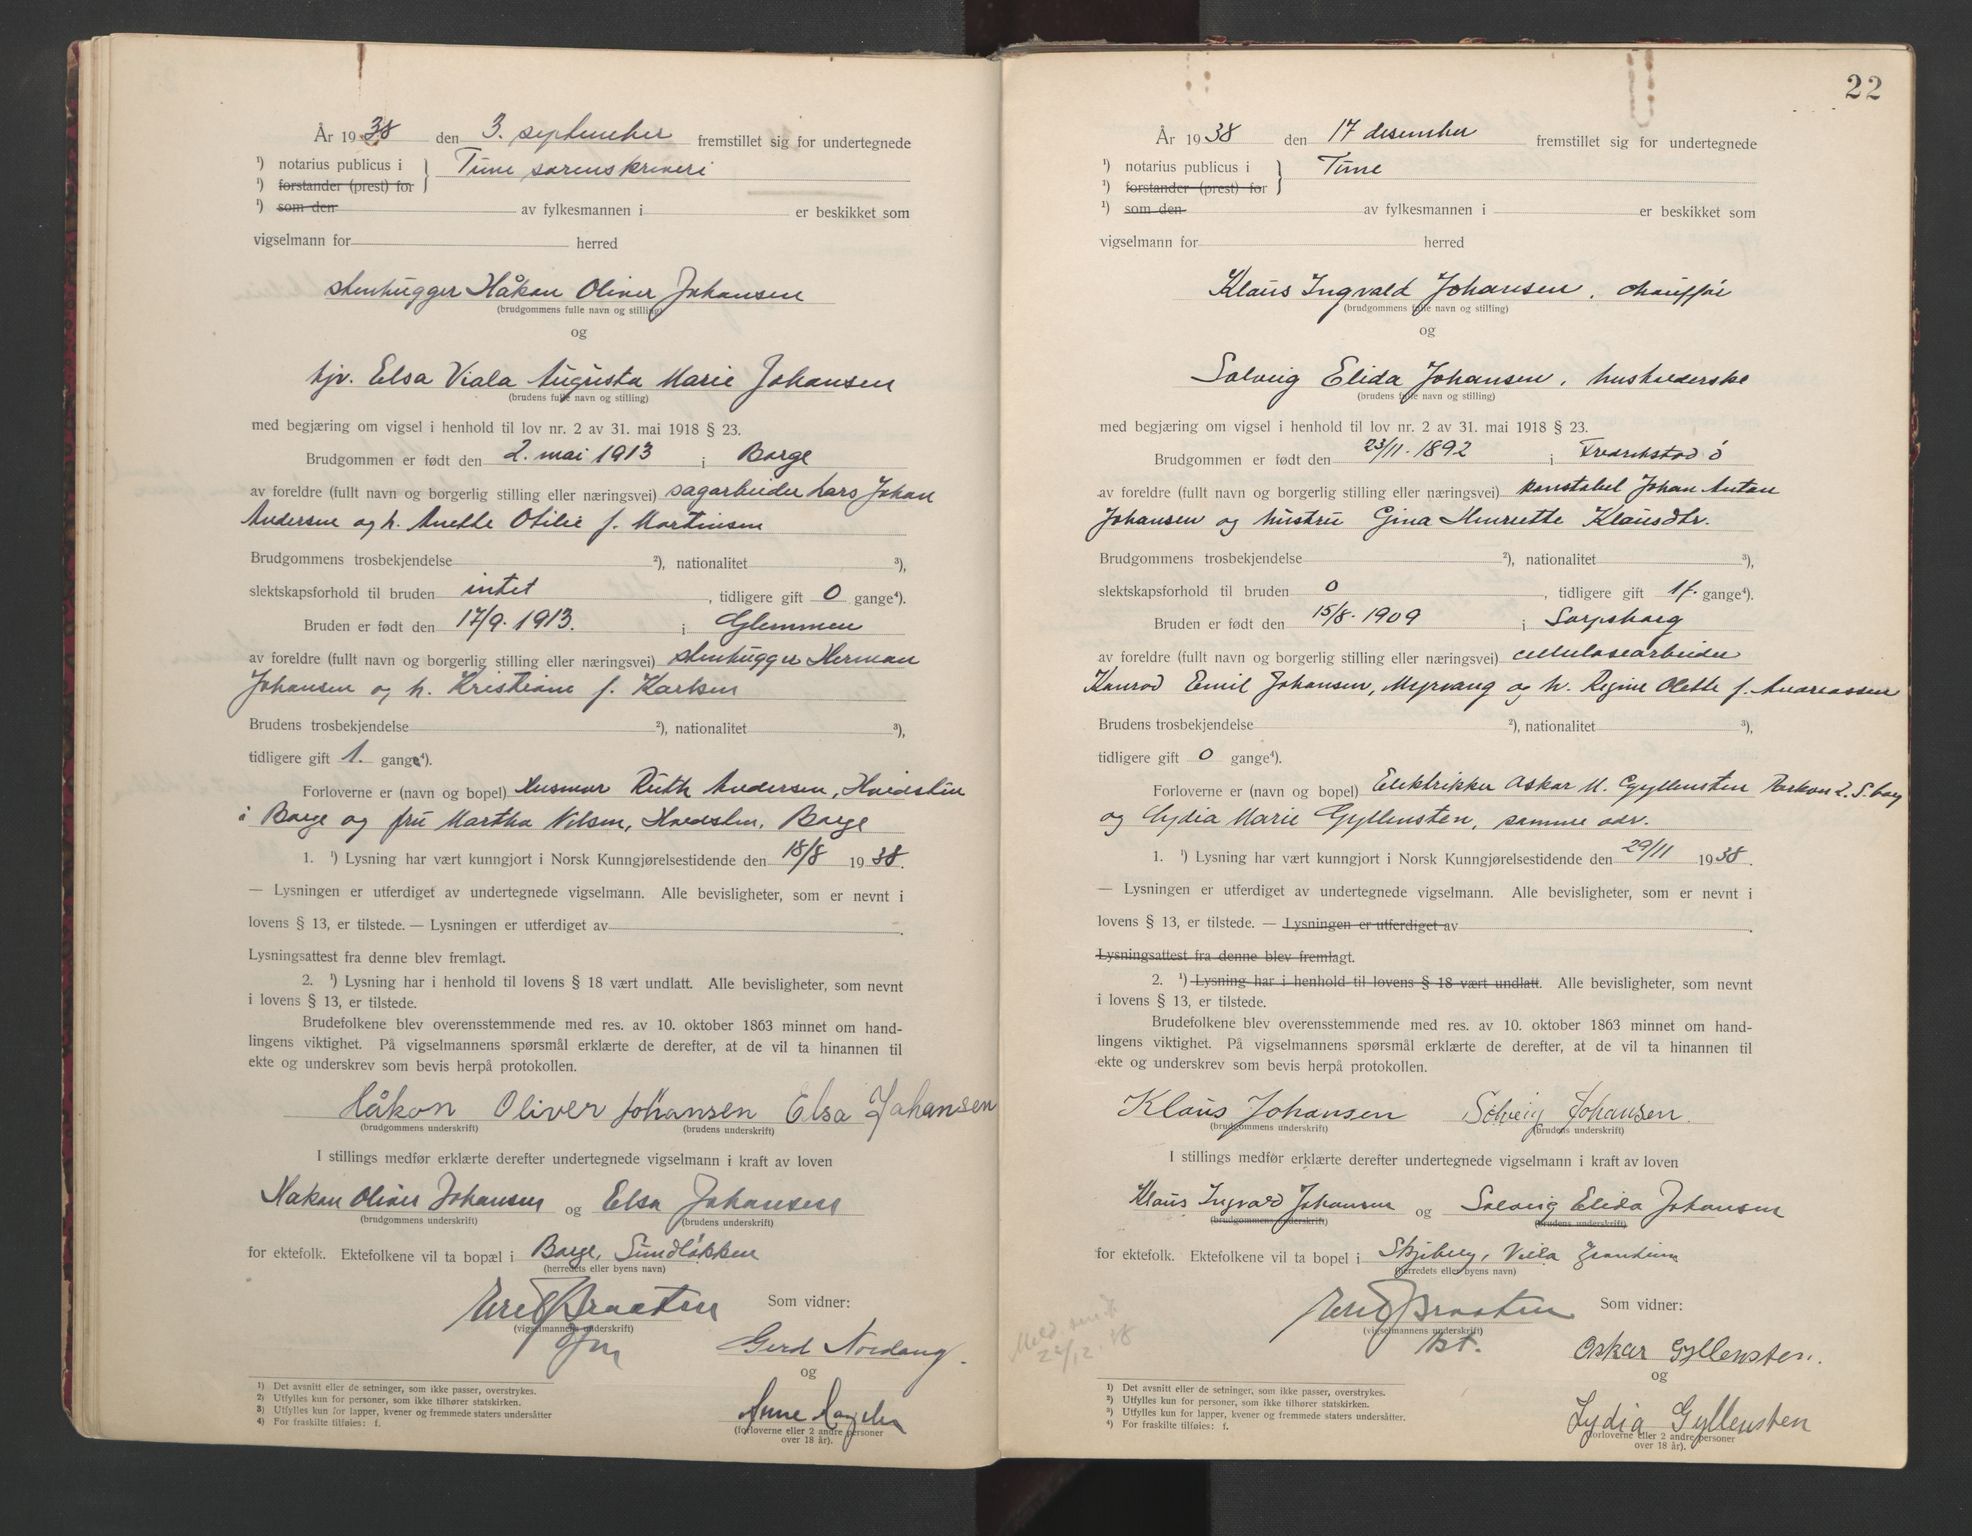 År 1938 den 3. september fremstillet sig for undertegnede
¹) notarius publicus i } Tune sorenskriveri
¹) forstander (prest) for
¹) som den av fylkesmannen i er beskikket som
vigselmann for herred
stenhugger Håkon Oliver Johansen
(brudgommens fulle navn og stilling)
og
hjv. Elsa Viala Augusta Marie Johansen
(brudens fulle navn og stilling)
med begjæring om vigsel i henhold til lov nr. 2 av 31. mai 1918 § 23.
Brudgommen er født den 2. mai 1913 i Borge
av foreldre (fullt navn og borgerlig stilling eller næringsvei) sagarbeider Lars Johan
Andersen og h. Anette Otilie f. Martinsen
Brudgommens trosbekjendelse ²), nationalitet ³),
slektskapsforhold til bruden intet , tidligere gift 0 gange⁴).
Bruden er født den 17/9. 1913. i Glemmen
av foreldre (fullt navn og borgerlig stilling eller næringsvei) stenhugger Herman
Johansen og h. Kristiane f. Karlsen
Brudens trosbekjendelse ²), nationalitet ³),
tidligere gift 1. gange⁴).
Forloverne er (navn og bopel) Husmor Ruth Andersen, Hvidsten
i Borge og fru Martha Nilsen, Hvidsten, Borge
1. ¹) Lysning har vært kunngjort i Norsk Kunngjørelsestidende den 18/8 1938.
— Lysningen er utferdiget av undertegnede vigselmann. Alle bevisligheter, som er nevnt i
lovens § 13, er tilstede. — Lysningen er utferdiget av .
Lysningsattest fra denne blev fremlagt.
2. ¹) Lysning har i henhold til lovens § 18 vært undlatt. Alle bevisligheter, som nevnt
i lovens § 13, er tilstede.
Brudefolkene blev overensstemmende med res. av 10. oktober 1863 minnet om hand-
lingens viktighet. På vigselmannens spørsmål erklærte de derefter, at de vil ta hinannen til
ekte og underskrev som bevis herpå protokollen.
Håkon Oliver Johansen Elsa Johansen
(brudgommens underskrift) (brudens underskrift)
I stillings medfør erklærte derefter undertegnede vigselmann i kraft av loven
Håkon Oliver Johansen og Elsa Johansen
(brudgommens underskrift) (brudens underskrift)
for ektefolk. Ektefolkene vil ta bopæl i Borge, Sundløkken
(herredets eller byens navn)
Braaten Som vidner:
(vigselmannens underskrift)
Gerd Nordang.
og
Anne
(forloverne eller 2 andre personer
over 18 år).
¹) Det avsnitt eller de setninger, som ikke passer, overstrykes.
²) Utfylles kun for personer, som ikke tilhører statskirken.
³) Utfylles kun for lapper, kvener og fremmede staters undersåtter
⁴) For fraskilte tilføies: f.
22
År 1938 den 17 desember fremstillet sig for undertegnede
¹) notarius publicus i } Tune
¹) forstander (prest) for
¹) som den av fylkesmannen i er beskikket som
vigselmann for herred
Klaus Ingvald Johansen, chauffør
(brudgommens fulle navn og stilling)
og
Solveig Elida Johansen, husholderske
(brudens fulle navn og stilling)
med begjæring om vigsel i henhold til lov nr. 2 av 31. mai 1918 § 23.
Brudgommen er født den 23/11. 1892 i Fredrikstad ø
av foreldre (fullt navn og borgerlig stilling eller næringsvei) konstabel Johan Anton
Johansen og hustru Gina Henriette Klausdtr.
Brudgommens trosbekjendelse ²), nationalitet ³),
slektskapsforhold til bruden 0 , tidligere gift 1f. gange⁴).
Bruden er født den 15/8. 1909 i Sarpsborg
av foreldre (fullt navn og borgerlig stilling eller næringsvei) cellulosearbeider
Konrad Emil Johansen, Myrvang og h. Regine Olette f. Andreassen
Brudens trosbekjendelse ²), nationalitet ³),
tidligere gift 0 gange⁴).
Forloverne er (navn og bopel) Elektriker Oskar M. Gyllensten Parkvn 2. S.borg
og Lydia Marie Gyllensten, samme adr.
1. ¹) Lysning har vært kunngjort i Norsk Kunngjørelsestidende den 29/11 1938.
— Lysningen er utferdiget av undertegnede vigselmann. Alle bevisligheter, som er nevnt i
lovens § 13, er tilstede. — Lysningen er utferdiget av .
Lysningsattest fra denne blev fremlagt.
2. ¹) Lysning har i henhold til lovens § 18 vært undlatt. Alle bevisligheter, som nevnt
i lovens § 13, er tilstede.
Brudefolkene blev overensstemmende med res. av 10. oktober 1863 minnet om hand-
lingens viktighet. På vigselmannens spørsmål erklærte de derefter, at de vil ta hinannen til
ekte og underskrev som bevis herpå protokollen.
Klaus Johansen Solveig Johansen.
(brudgommens underskrift) (brudens underskrift)
I stillings medfør erklærte derefter undertegnede vigselmann i kraft av loven
Klaus Ingvald Johansen og Solveig Elida Johansen
(brudgommens underskrift) (brudens underskrift)
for ektefolk. Ektefolkene vil ta bopel i Skjeberg, Villa
(herredets eller byens navn)
Braaten Som vidner:
(vigselmannens underskrift)
Meld. sendt
22/12.38
Oskar Gyllensten.
og
Lydia Gyllensten
(forloverne eller 2 andre personer
over 18 år).
¹) Det avsnitt eller de setninger, som ikke passer, overstrykes.
²) Utfylles kun for personer, som ikke tilhører statskirken.
³) Utfylles kun for lapper, kvener og fremmede staters undersåtter.
⁴) For fraskilte tilføies: f.